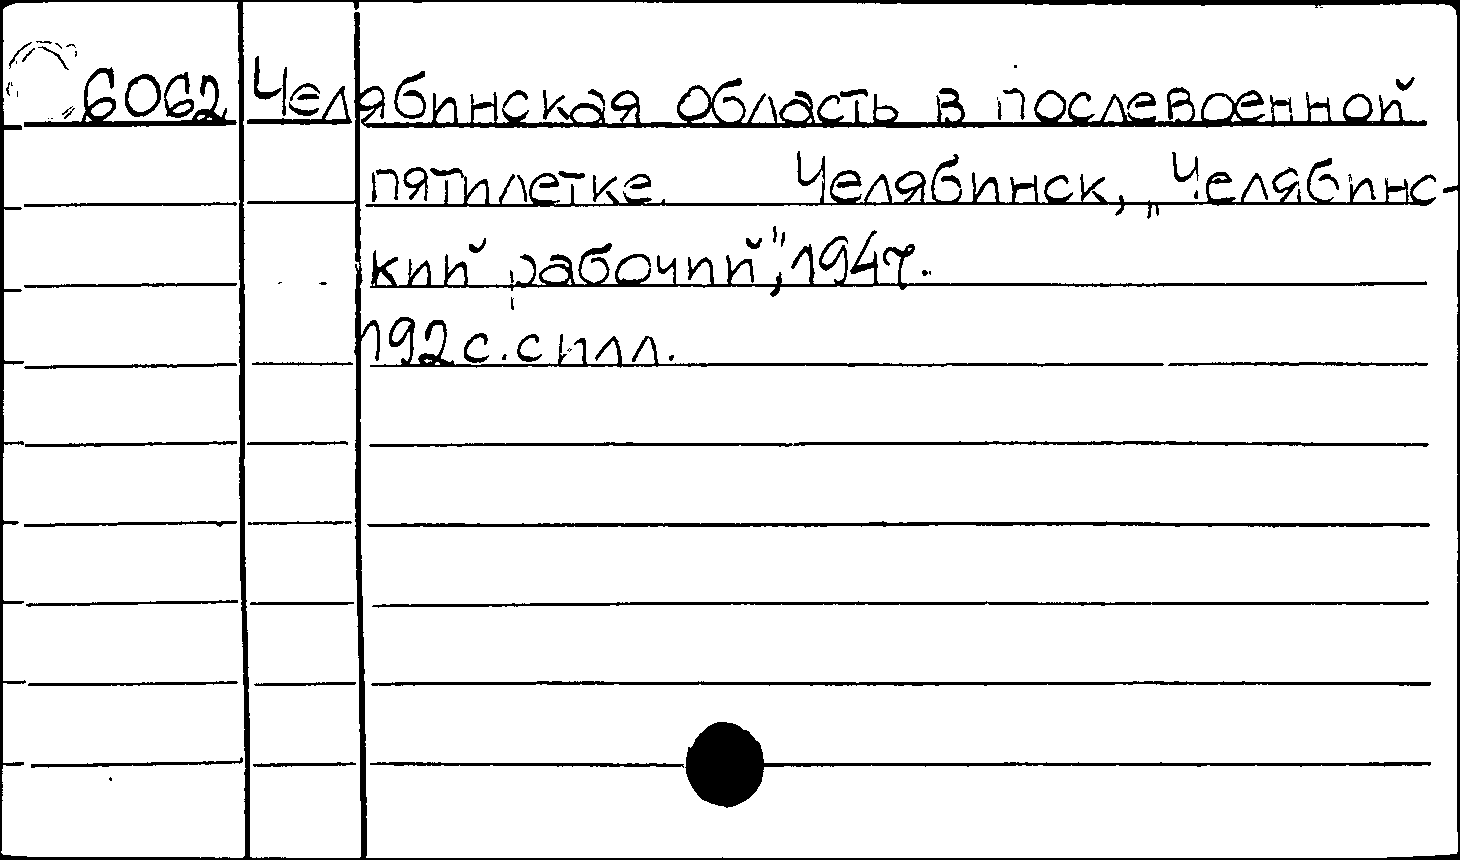 6062 Челябинская область в послевоенной
пятилетке. Челябинск, „Челябинс-
кий рабочий", 1947.
192 с. с илл.